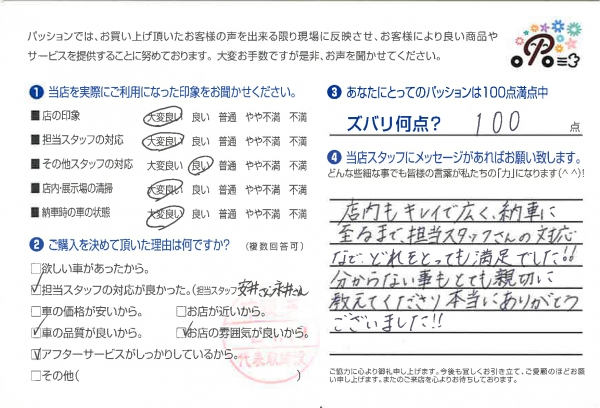 パッションでは、お買い上げ頂いたお客様の声を出来る限り現場に反映させ、お客様により良い商品や
サービスを提供することに努めております。大変お手数ですが是非、お声を聞かせてください。
❶ 当店を実際にご利用になった印象をお聞かせください。
■ 店の印象 大変良い 良い 普通 やや不満 不満
■ 担当スタッフの対応 大変良い 良い 普通 やや不満 不満
■ その他スタッフの対応 大変良い 良い 普通 やや不満 不満
■ 店内・展示場の清掃 大変良い 良い 普通 やや不満 不満
■ 納車時の車の状態 大変良い 良い 普通 やや不満 不満
❷ ご購入を決めて頂いた理由は何ですか? (複数回答可)
□欲しい車があったから。
☑担当スタッフの対応が良かった。(担当スタッフ 安井さん
□車の価格が安いから。 □お店が近いから。
☑車の品質が良いから。 ☑お店の雰囲気が良いから。
☑アフターサービスがしっかりしているから。
□その他( )
代表取締役
❸ あなたにとってのパッションは100点満点中
ズバリ何点? 100 点
❹ 当店スタッフにメッセージがあればお願い致します。
どんな些細な事でも皆様の言葉が私たちの「力」になります(^ ^)!
店内もキレイで広く、納車に
至るまで、担当スタッフさんの対応
など、どれをとっても満足でした!!
分からない事もとても親切に
教えてくださり本当にありがとう
ございました!!
ご協力に心より御礼申し上げます。今後も宜しくお引き立て、ご愛顧のほどお願
い申し上げます。またのご来店を心よりお待ちしております。